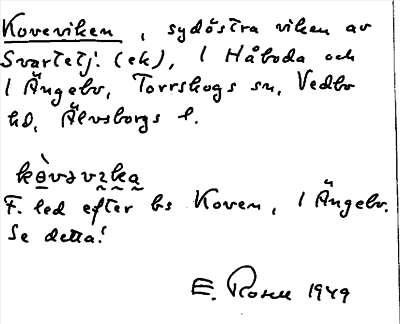 Koveviken, sydöstra viken av
Svartetj. (ek), 1 Håboda och
1 Ängebo, Torrskogs sn, Vedbo
hd, Älvsborgs l.
F. led efter bs Koven, 1 Ängebo.
Se detta!
E. Rosell 1949